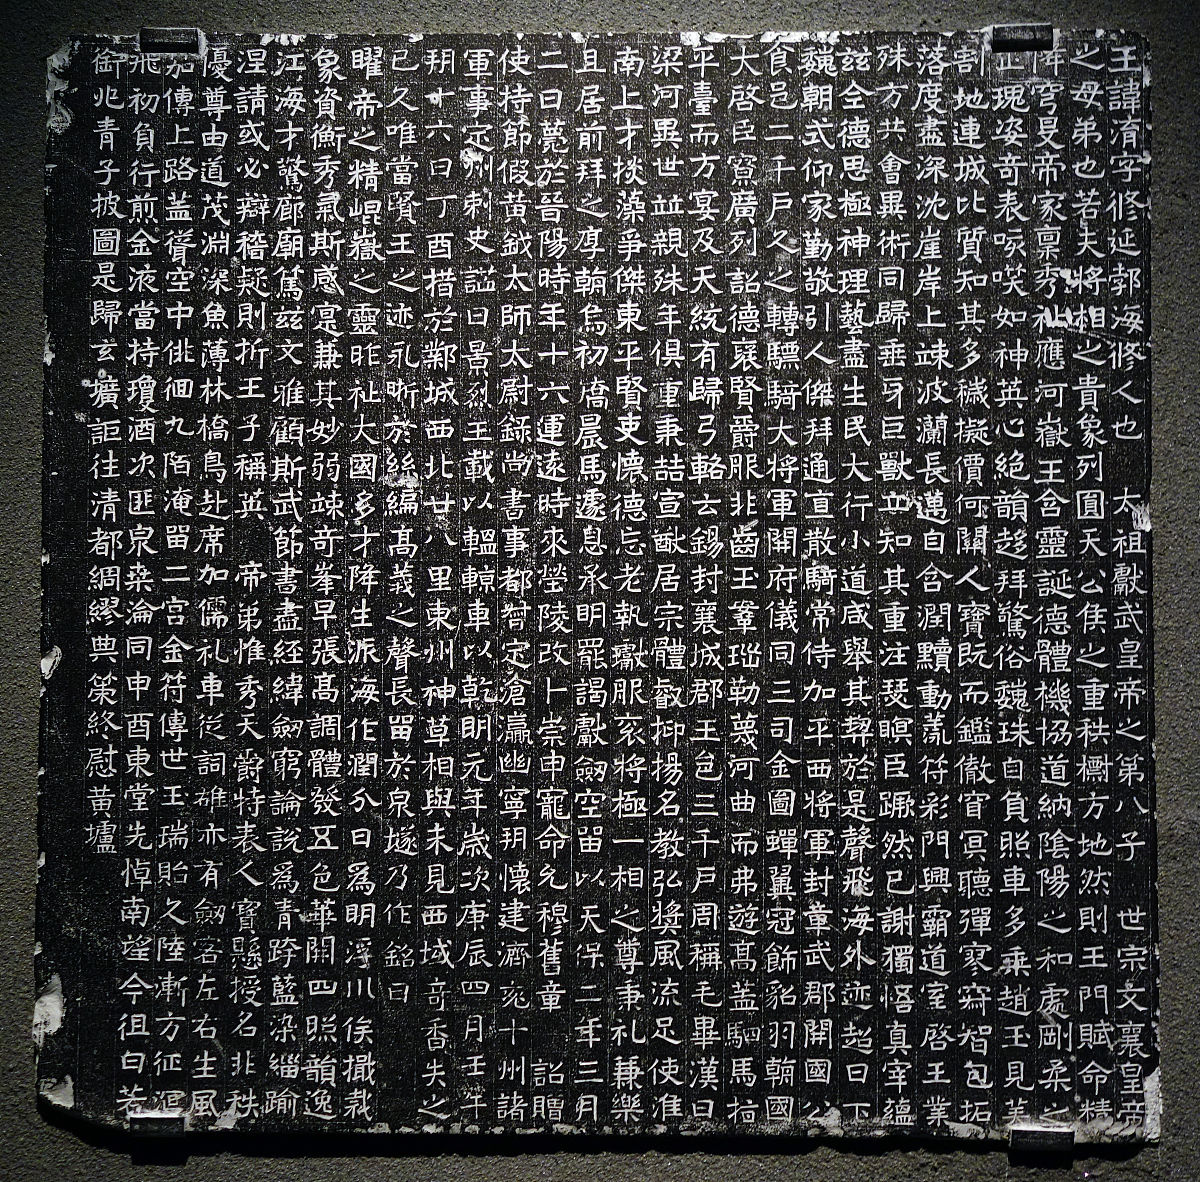 王諱淯字修延郭海修人也 太祖獻武皇帝之第八子 世宗文襄皇帝
之母弟也若夫將相之貴象列圓天公侯之重秩櫥方地然則王門賦命精
降穹旻帝家稟秀祉應河嶽王含靈誕德體機協道納陰陽之和處剛柔之
正瑰姿奇表咳笑如神英心絕韻趍拜驚俗魏珠自負照車多乘趙玉見美
割地連城比質知其多穢擬價何關人寶既而鑑徹窅冥聽彈寥寂智包拓
落度盡深沈崖岸上竦波瀾長邁自含潤黷動蓺符彩門興霸道室啓王業
殊方共會異術同歸垂牙巨獸立知其重注瑟瞑臣踊然已謝獨悟真宰蘊
兹全德思極神理藝盡生民大行小道咸舉其契於是聲飛海外迹超日下
魏朝式仰家勤敬引人傑拜通直散騎常侍加平西將軍封章武郡開國公
食邑二千戶久之轉驃騎大將軍開府儀同三司金圖蟬翼冠飾貂羽輪國
大啓臣寮廣列詔德襃賢爵服非齒玉鞶瑙勒蔑河曲而弗遊髙蓋駟馬指
平臺而方宴及天統有歸弓輅云錫封襄城郡王邑三千戶周稱毛畢漢曰
梁河異世並親殊年俱重秉喆宣猷居宗體叡抑揚名教弘獎風流足使淮
南上才掞藻爭傑東平賢吏懷德忘老執瓛服衮將極一相之尊秉礼兼樂
且居前拜之厚朝烏初矯晨馬遽息承明罷謁獻劒空留以天保二年三月
二日薨於晉陽時年十六運遠時來塋陵改卜崇申寵命允穆舊章 詔贈
使持節假黃鉞太師太尉錄尚書事都督定滄瀛幽寧玥懷建濟兗十州諸
軍事定州刺史謚曰景烈王載以轀輬車以乾明元年歲次庚辰四月壬午
朔十六日丁酉措於鄴城西北廿八里東州神草相與未見西域奇香失之
已久唯當賢王之迹永晣於絲編髙義之聲長留於泉燧乃作銘曰
曜帝之精崐嶽之靈昨祉大國多才降生派海作潤分日爲明浮川俟撒裁
象資衡秀氣斯感寔兼其妙弱竦奇峯早張髙調體發五色華開四照韻逸
江海才驚廊廟篤兹文雅顧斯武節書盡經緯劒窮論說爲青跨藍染緇踰
涅請或必辯稽疑則折王子稱英 帝弟惟秀天爵特表人寶懸授名非秩
優尊由道茂淵深魚薄林橋鳥赴席加儒礼車從詞雄亦有劒客左右生風
茄傳上路蓋聳空中徘徊九陌淹留二宮金符傳世玉瑞貽久陸漸方征溟
飛初負行前金液當持瓊酒次匪泉桒淪同申酉東堂先悼南望今徂白若
御兆青子披圖是歸玄壙詎往清都綢繆典策終慰黃壚